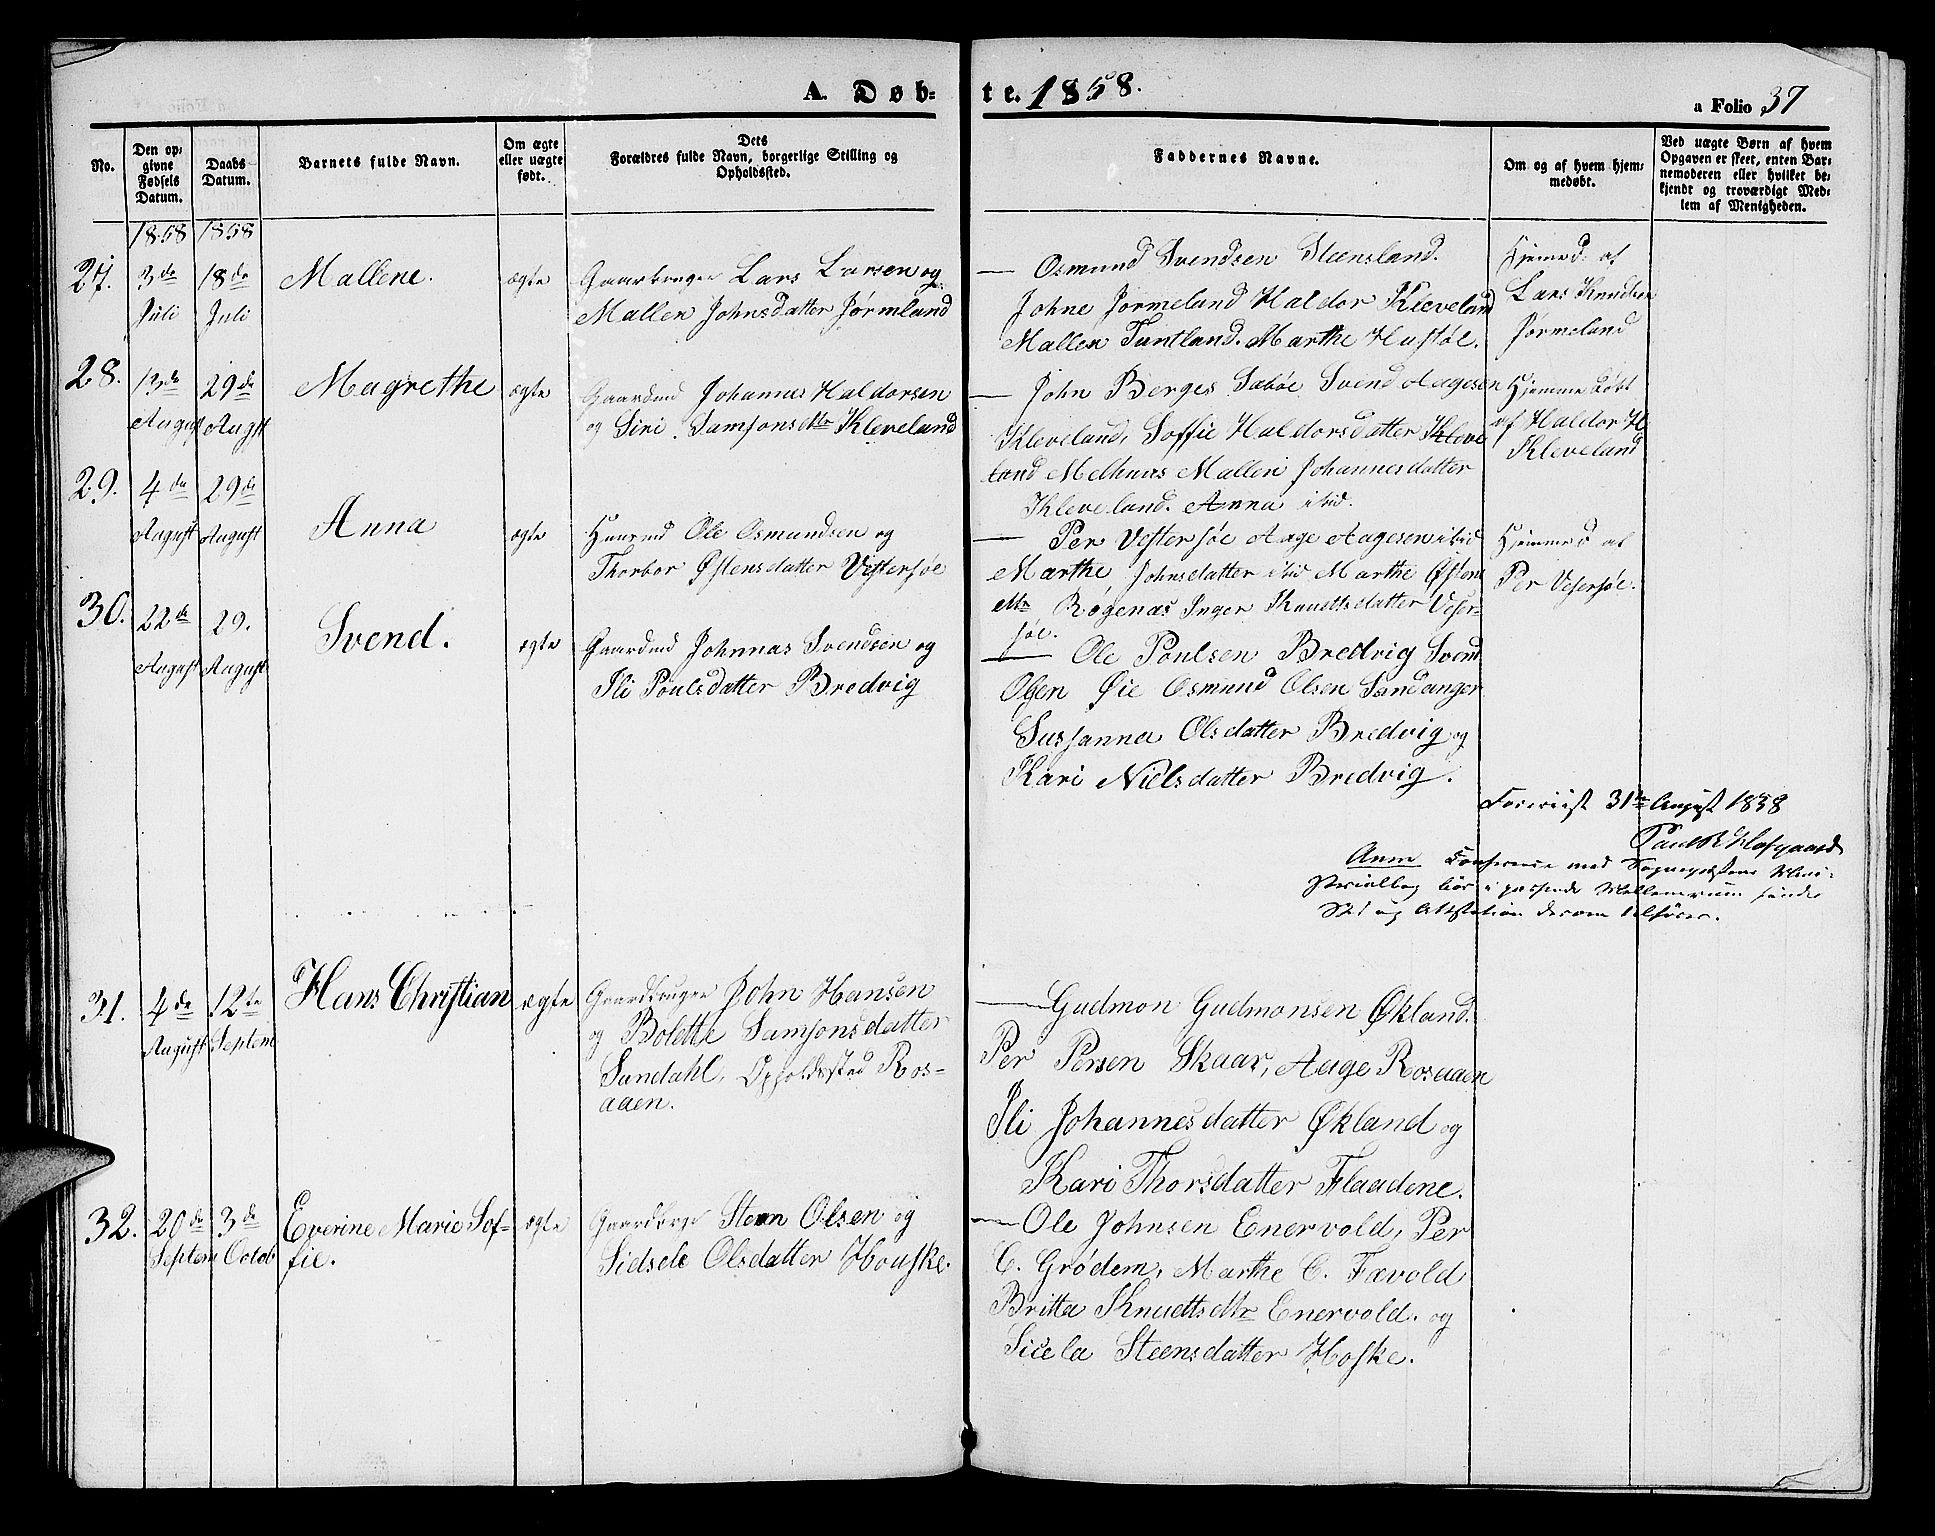 A. Døb-
te. 1858.
a Folio 37
No.
Den op-
givne
Fødsels
Datum.
Daabs
Datum.
Barnets fulde Navn.
Om ægte
eller uægte
født.
Dets
Forældres fulde Navn, borgerlige Stilling og
Opholdssted.
Faddernes Navne.
Om og af hvem hjem-
medøbt.
Ved uægte Børn af hvem
Opgaven er skeet, enten Bar-
nemoderen eller hvilket be-
kjendt og troværdigt Med-
lem af Menigheden.
1858 1858
27. 3de Juli
18de Juli
Mallene.
ægte
Gaarbruger Lars Larsen og
Mallen Johnsdatter Jørmland
— Osmund Svendsen Steensland.
Johne Jørmeland Haldor Kleveland
Mallen Tuntland. Marthe Hustøl.
Hjemed: af
Lars Knudsen
Jørmeland
28. 13de August
29de Augst
Magrethe
ægte
Gaardmd Johannes Haldorsen
og Siri Samsonsdtr Kleveland
— John Berges Sæbøe Svend Aagesen
Kleveland, Soffie Haldorsdatter Kleve
land Melhuus Mallen Johannesdatter
Kleveland. Anna ibid.
Hjemme døbt
af Haldor H
Kleveland
29. 4de August
29de August
Anna
ægte
Huusmd Ole Osmundsen og
Thorbor Østensdatter Vestersøe
— Per Vestersøe Aage Aagesen ibid
Marthe Johnsdatter ibid Marthe Østens
dtr Røgenæs Inger Knuttsdatter Veser-
søe.
Hjemmed af
Per Vesersøe.
30. 22de August
29. August
Svend.
ægte
Gaardmd Johnnas Svendsen og
Ili Poulsdatter Bredvig
— Ole Poulsen Bredvig Svend
Olsen Øie Osmund Olsen Sandanger
Susanna Olsdatter Bredvig og
Kari Nielsdatter Bredvig.
Foreviist 31te August 1858
Anm Conference med Sognepræstens Mini-
sterialbog bør i passende Mellemrum finde
Sted og Attestation derom tilføres.
31. 4de August
12te Septem
Hans Christian
ægte
Gaardbruger John Hansen
og Bolette Samsonsdatter
Sandahl, Opholdssted Ros-
aaen.
— Gudmon Gudmonsen Økland.
Per Persen Skaar, Aage Rosaaen
Ili Johannesdatter Økland og
Kari Thorsdatter Flaadene.
32. 20de Septem
3de Octob
Everine Marie Sof-
fie.
ægte
Gaardbrger Steen Olsen og
Sidsele Olsdatter Houske.
— Ole Johnsen Enervold, Per
C. Grødem, Marthe C. Fævold
Britta Knuttsdtr Enervold. og
Sicela Steensdatter Hoske.